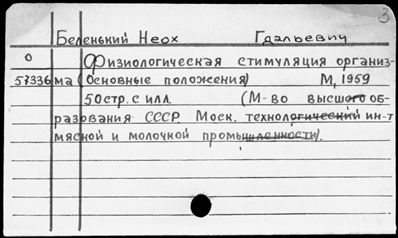 3
Беленький Неох Гдальевич
0 Физиологическая стимуляция организ-
57336 ма (Основные положения) М, 1959
50 стр. с илл. (М-во высшего об-
разования СССР. Моск. технологический ин-т
мясной и молочной промышленности).